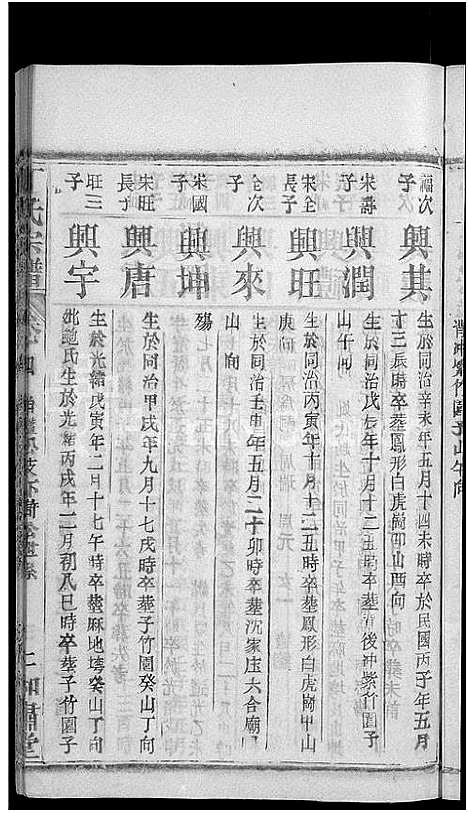 福次子
興其
生於同治辛未年五月十四未時卒於民國丙子年五月
十三辰時卒塟鳳形白虎崗卯山酉向
宋壽子
興潤
生於同治戊辰年十月十二丑時卒塟
後冲紫竹園子
山午向
宋全長子
興旺
生於同治丙寅年十月十二丑時卒塟鳳形白虎崗甲山
庚向
全次子
興來
生於同治壬申年五月二十卯時卒塟沈家庄六合廟
山向
宋國子
興坤
殤
宋旺長子
興唐
生於同治甲戌年九月十七戌時卒塟子竹園癸山丁向
旺三子
興宇
生於光緒戊寅年二月十七午時卒塟麻地塝癸山丁向
妣鮑氏生於光緒丙戌年二月初八巳時卒塟子竹園子
氏宗譜